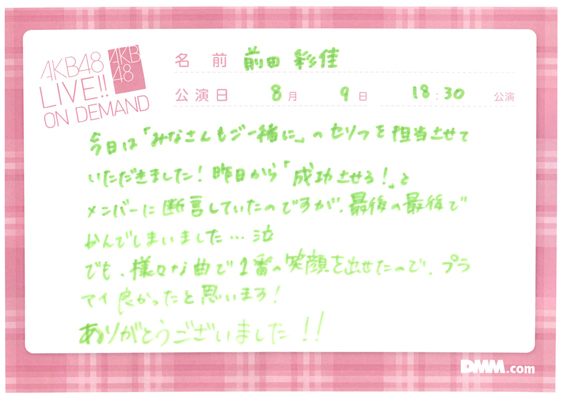 AKB48
LIVE!!
ON DEMAND
AKB
48
名 前 前田 彩佳
公演日 8月 9日 18:30 公演
今日は「みなさんもご一緒に」のセリフを担当させて
いただきました!昨日から「成功させる!」と
メンバーに断言していたのですが、最後の最後で
かんでしまいました…泣
でも、様々な曲で1番の笑顔を出せたので、プラ
マイ良かったと思います!
ありがとうございました!!
DMM.com